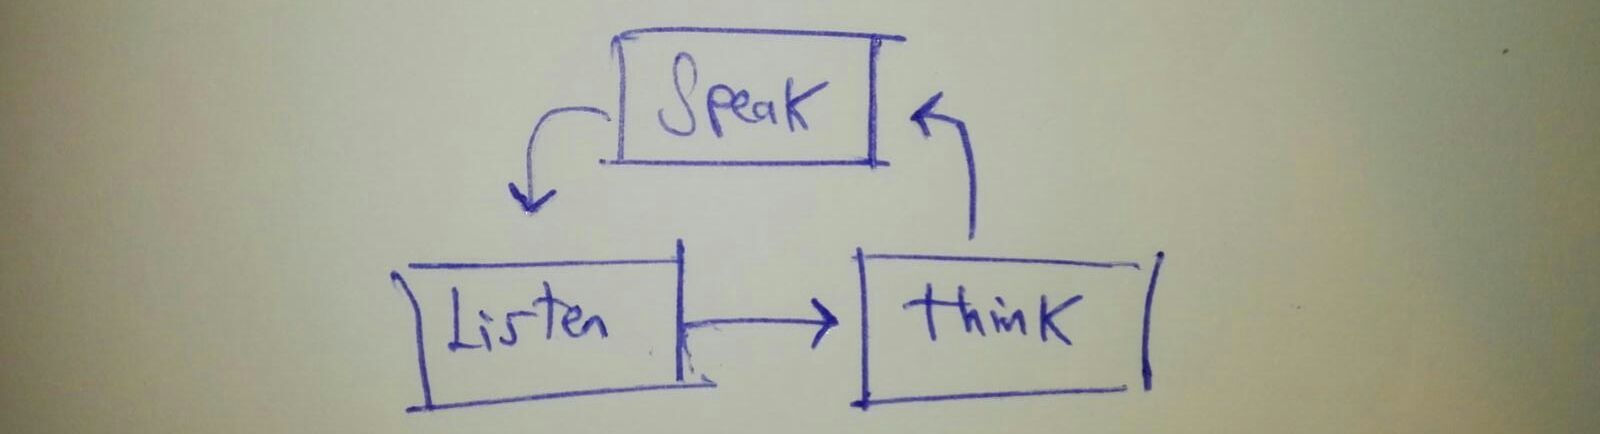 Speak
Listen
think